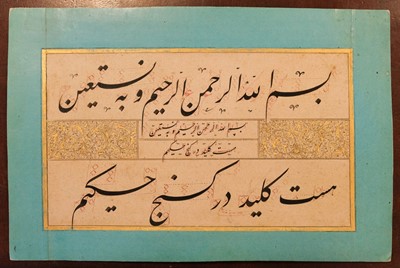 بسم الله الرحمن الرحیم و به نستعین
بسم الله الرحمن الرحیم و به نستعین
هست کلید در گنج حکیم
هست کلید در کنج حکیم